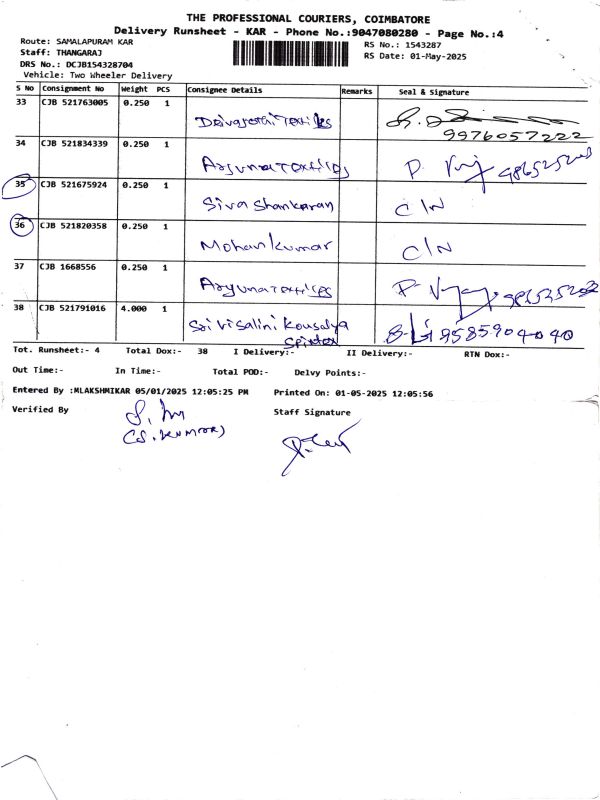 THE PROFESSIONAL COURIERS, COIMBATORE
Delivery Runsheet - KAR - Phone No.:9047080280 - Page No.:4
Route: SAMALAPURAM KAR
RS No.: 1543287
Staff: THANGARAJ
RS Date: 01-May-2025
DRS No.: DCJB154328704
Vehicle: Two Wheeler Delivery
S No Consignment No Weight PCS Consignee Details Remarks Seal & Signature
33 CJB 521763005 0.250 1
9976057222
34 CJB 521834339 0.250 1
35 CJB 521675924 0.250 1
Siva Shankaran C/N
36 CJB 521820358 0.250 1
Mohan Kumar C/N
37 CJB 1668556 0.250 1
38 CJB 521791016 4.000 1
Sri Visalini Kousalya 9585904040
Spintex
Tot. Runsheet:- 4 Total Dox:- 38 I Delivery:- II Delivery:- RTN Dox:-
Out Time:- In Time:- Total POD:- Delvy Points:-
Entered By :MLAKSHMIKAR 05/01/2025 12:05:25 PM Printed On: 01-05-2025 12:05:56
Verified By Staff Signature
(S. Kumar)